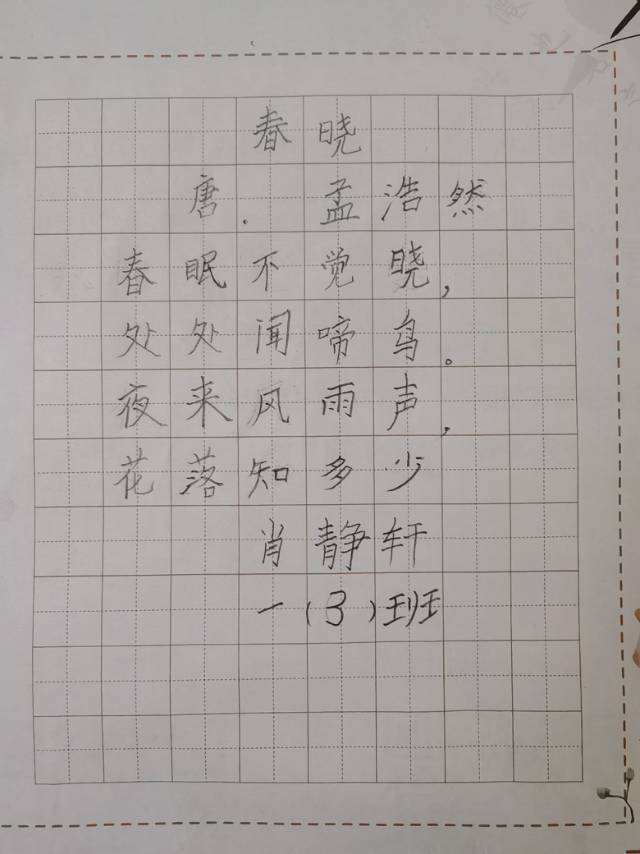 春晓
唐.孟浩然
春眠不觉晓,
处处闻啼鸟。
夜来风雨声,
花落知多少
肖静轩
一(3)班